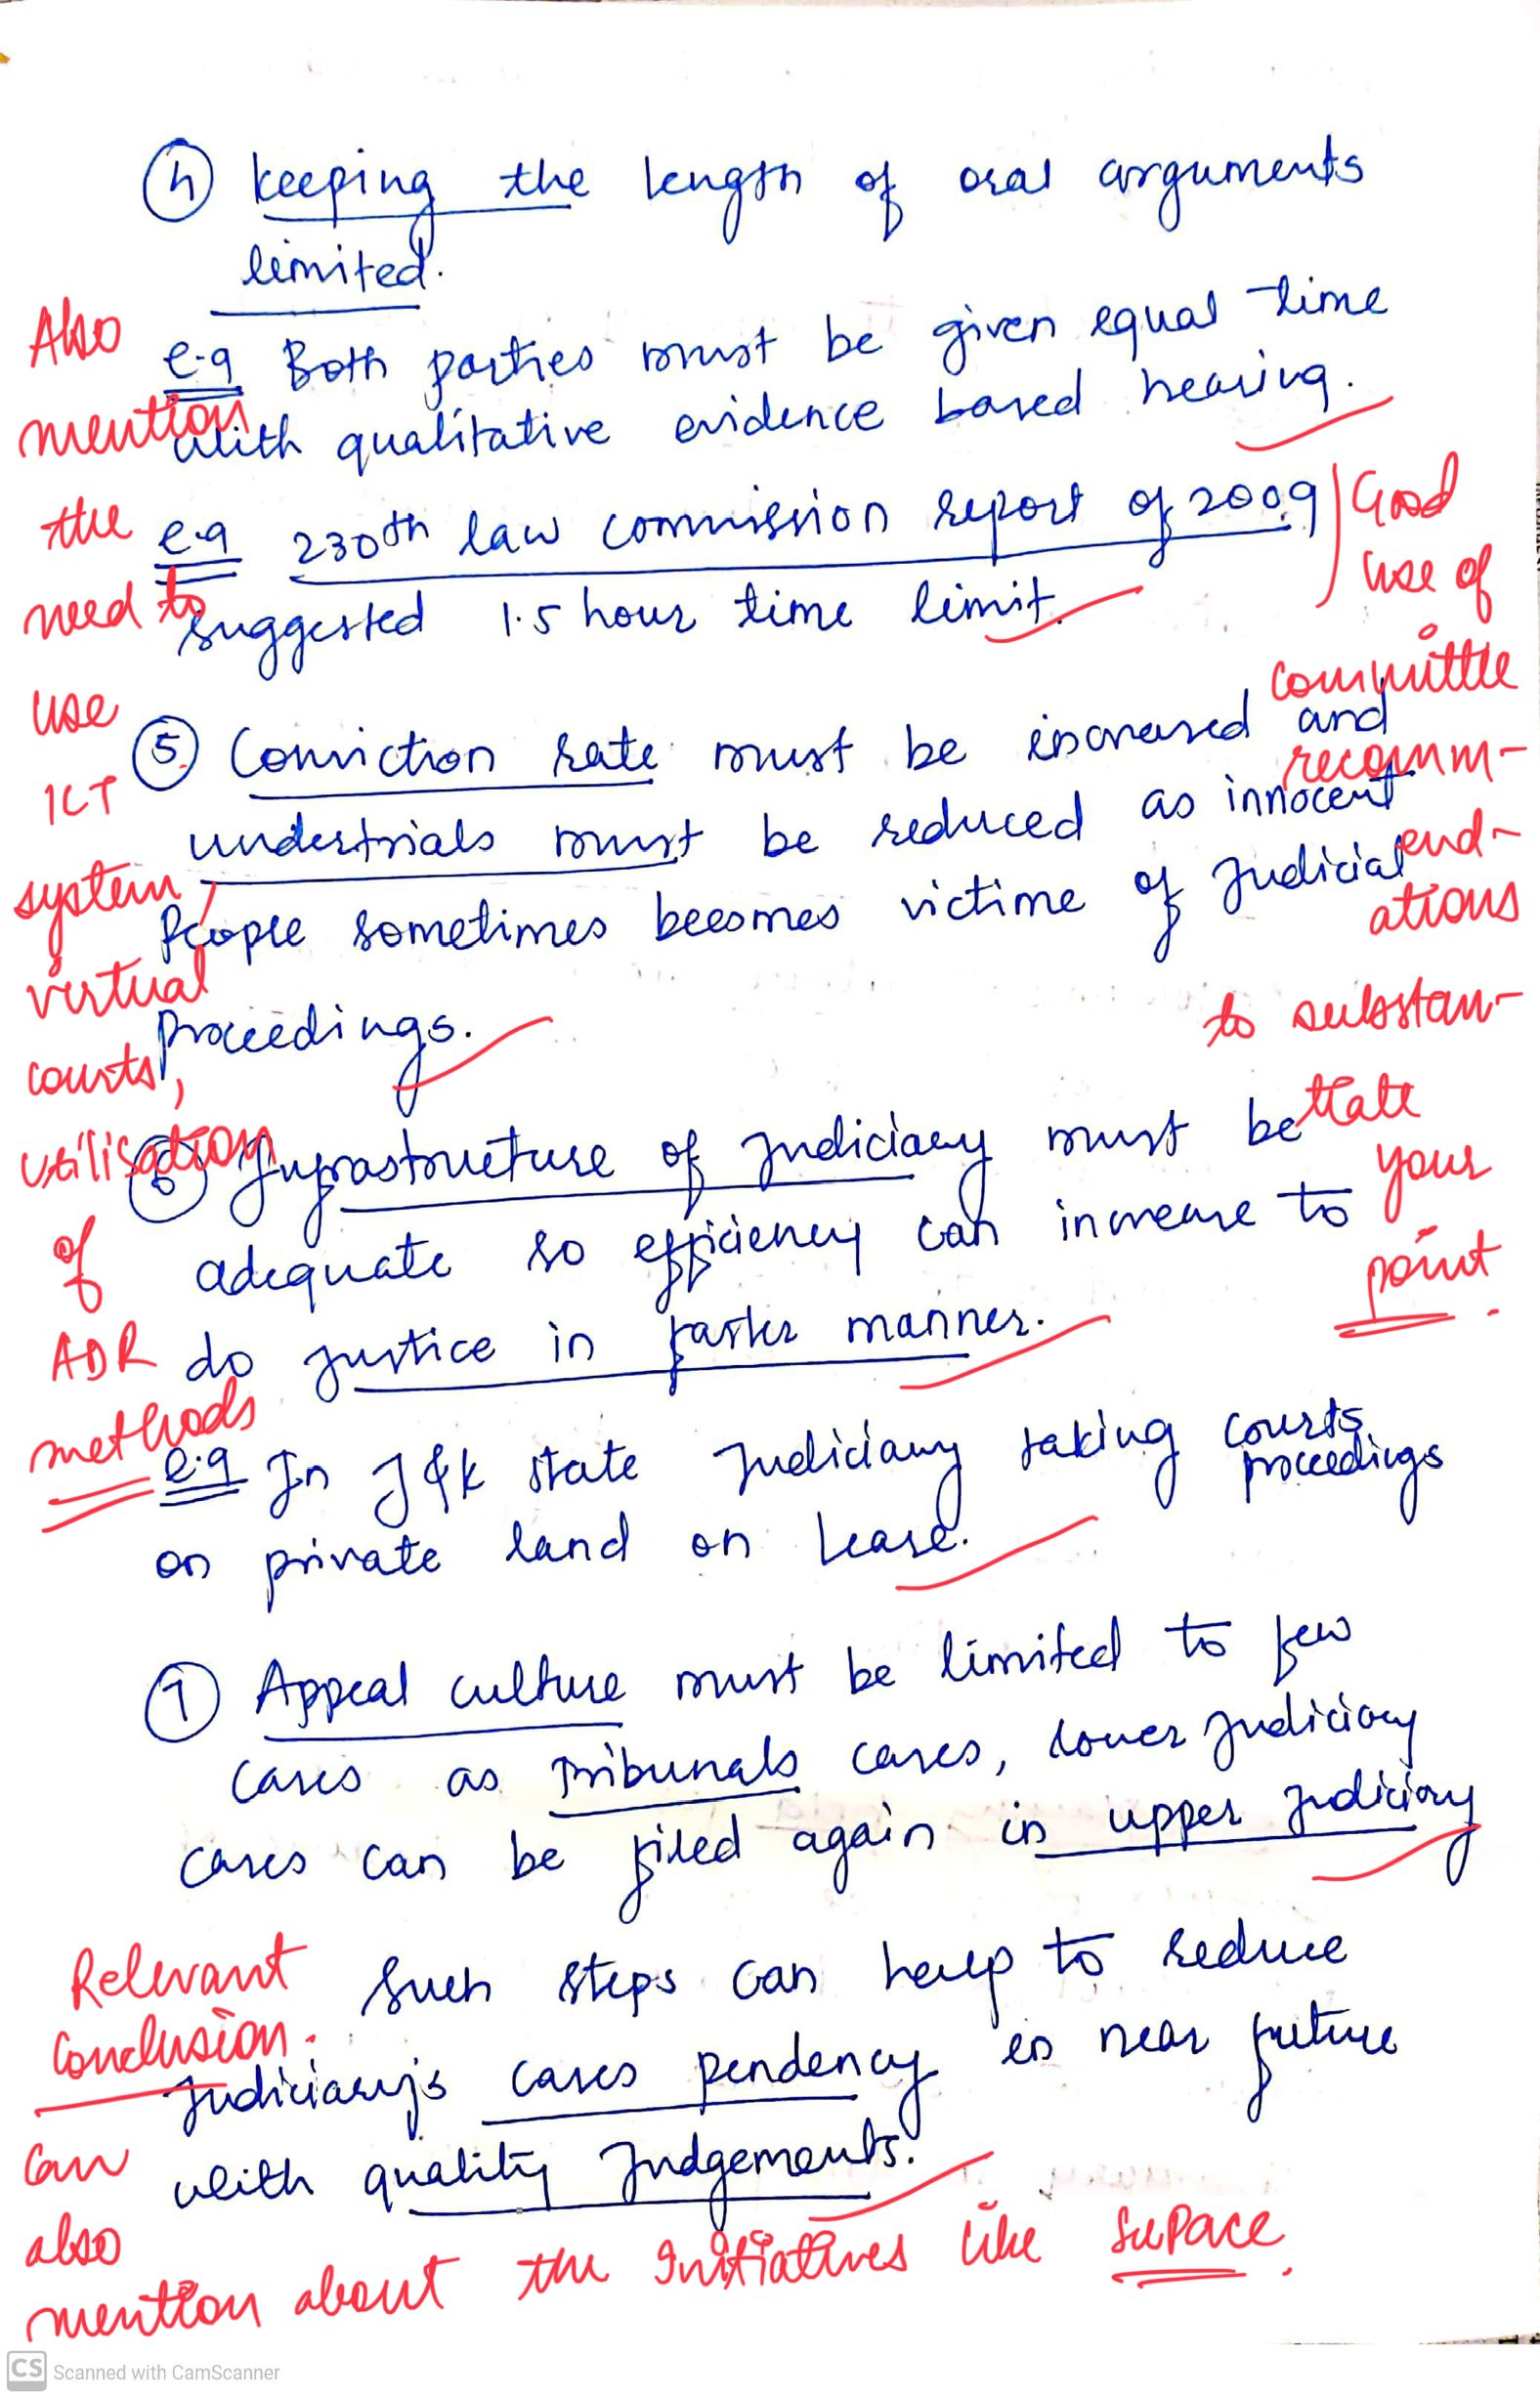 ④ keeping the length of oral arguments
limited.
e.g Both parties must be given equal time
with qualitative evidence based hearing.
e.g 230th law commission report of 2009
suggested 1.5 hour time limit.
⑤ Conviction rate must be increased and
undertrials must be reduced as innocent
People sometimes becomes victime of Judicial
Proceedings.
⑥ Infrastructure of Judiciary must be
adequate so efficiency can increase to
do justice in faster manner.
e.g In J&K state Judiciary taking courts proceedings
on private land on Lease.
⑦ Appeal culture must be limited to few
cases as Tribunals cases, lower Judiciary
cases can be filed again in upper Judiciary
Such steps can help to reduce
Judiciary's cases pendency in near future
with quality Judgements.
Also
mention
the
need to
use
ICT
system,
virtual
courts,
utilisation
of
ADR
methods
Good
use of
committee
recomm-
end-
ations
to substan-
tiate
your
point.
Relevant
Conclusion.
Can
also
mention about the Initiatives like SuPace.
CS Scanned with CamScanner